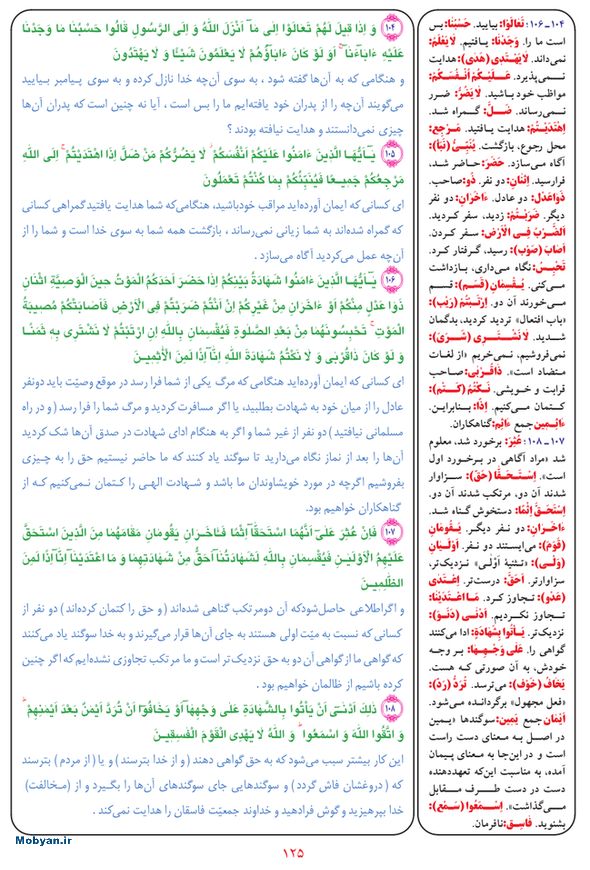 ۱۰۴ وَ اِذَا قِیلَ لَهُمْ تَعَالَوْا اِلَی مَآ اَنْزَلَ اللهُ وَ اِلَی الرَّسُولِ قَالُوا حَسْبُنَا مَا وَجَدْنَا
عَلَیْهِ ءَابَآءَنَآ اَوَ لَوْ کَانَ ءَابَآؤُهُمْ لَا یَعْلَمُونَ شَیْئًا وَ لَا یَهْتَدُونَ
و هنگامی که به آن‌ها گفته شود ، به سوی آن‌چه خدا نازل کرده و به سوی پیامبر بیایید
می‌گویند آن‌چه را از پدران خود یافته‌ایم ما را بس است ، آیا نه چنین است که پدران آن‌ها
چیزی نمی‌دانستند و هدایت نیافته بودند ؟
۱۰۵ یَـٓاَیُّهَا الَّذِینَ ءَامَنُوا عَلَیْکُمْ اَنْفُسَکُمْ لَا یَضُرُّکُمْ مَنْ ضَلَّ اِذَا اهْتَدَیْتُمْ اِلَی اللهِ
مَرْجِعُکُمْ جَمِیعًا فَیُنَبِّئُکُمْ بِمَا کُنْتُمْ تَعْمَلُونَ
ای کسانی که ایمان آورده‌اید مراقب خودباشید، هنگامی‌که شما هدایت یافتید گمراهی کسانی
که گمراه شده‌اند به شما زیانی نمی‌رساند ، بازگشت همه شما به سوی خدا است و شما را از
آن‌چه عمل می‌کردید آگاه می‌سازد .
۱۰۶ یَـٓاَیُّهَا الَّذِینَ ءَامَنُوا شَهَادَةُ بَیْنِکُمْ اِذَا حَضَرَ اَحَدَکُمُ الْمَوْتُ حِینَ الْوَصِیَّةِ اثْنَانِ
ذَوَا عَدْلٍ مِنْکُمْ اَوْ ءَاخَرَانِ مِنْ غَیْرِکُمْ اِنْ اَنْتُمْ ضَرَبْتُمْ فِی الْاَرْضِ فَاَصَابَتْکُمْ مُصِیبَةُ
الْمَوْتِ تَحْبِسُونَهُمَا مِنْ بَعْدِ الصَّلٰوةِ فَیُقْسِمَانِ بِاللهِ اِنِ ارْتَبْتُمْ لَا نَشْتَرِی بِهِ ثَمَنًا
وَ لَوْ کَانَ ذَاقُرْبَی وَ لَا نَکْتُمُ شَهَادَةَ اللهِ اِنَّآ اِذًا لَمِنَ الْأَثِمِینَ
ای کسانی که ایمان آورده‌اید هنگامی که مرگ یکی از شما فرا رسد در موقع وصیّت باید دونفر
عادل را از میان خود به شهادت بطلبید، یا اگر مسافرت کردید و مرگ شما را فرا رسد ( و در راه
مسلمانی نیافتید ) دو نفر از غیر شما و اگر به هنگام ادای شهادت در صدق آن‌ها شک کردید
آن‌ها را بعد از نماز نگاه می‌دارید تا سوگند یاد کنند که ما حاضر نیستیم حق را به چیزی
بفروشیم اگرچه در مورد خویشاوندان ما باشد و شهادت الهی را کتمان نمی‌کنیم که از
گناهکاران خواهیم بود .
۱۰۷ فَاِنْ عُثِرَ عَلَیٓ اَنَّهُمَا اسْتَحَقَّآ اِثْمًا فَـَٔاخَرَانِ یَقُومَانِ مَقَامَهُمَا مِنَ الَّذِینَ اسْتَحَقَّ
عَلَیْهِمُ الْاَوْلَیَانِ فَیُقْسِمَانِ بِاللهِ لَشَهَادَتُنَآ اَحَقُّ مِنْ شَهَادَتِهِمَا وَ مَا اعْتَدَیْنَآ اِنَّآ اِذًا لَمِنَ
الظّٰلِمِینَ
و اگراطلاعی حاصل‌شودکه آن دومرتکب گناهی شده‌اند ( و حق را کتمان کرده‌اند ) دو نفر از
کسانی که نسبت به میّت اولی هستند به جای آن‌ها قرار می‌گیرند و به خدا سوگند یاد می‌کنند
که گواهی ما از گواهی آن دو به حق نزدیک‌تر است و ما مرتکب تجاوزی نشده‌ایم که اگر چنین
کرده باشیم از ظالمان خواهیم بود .
۱۰۸ ذٰلِکَ اَدْنَیٓ اَنْ یَأْتُوا بِالشَّهَادَةِ عَلَی وَجْهِهَآ اَوْ یَخَافُوٓا اَنْ تُرَدَّ اَیْمَانٌ بَعْدَ اَیْمَانِهِمْ
وَ اتَّقُوا اللهَ وَ اسْمَعُوا وَ اللهُ لَا یَهْدِی الْقَوْمَ الْفٰسِقِینَ
این کار بیشتر سبب می‌شود که به حق گواهی دهند ( و از خدا بترسند ) و یا ( از مردم ) بترسند
که ( دروغشان فاش گردد ) و سوگندهایی جای سوگندهای آن‌ها را بگیرد و از (مخالفت)
خدا بپرهیزید و گوش فرادهید و خداوند جمعیّت فاسقان را هدایت نمی‌کند .
۱۰۴ـ۱۰۶: تَعَالَوْا: بیایید. حَسْبُنَا: بس
است ما را. وَجَدْنَا: یافتیم. لَا یَعْلَمُ:
نمی‌داند. لَا یَهْتَدِی (هَدَی): هدایت
نمی‌پذیرد. عَلَیْکُمْ اَنْفُسَکُمْ:
مواظب خود باشید. لَا یَضُرُّ: ضرر
نمی‌رساند. ضَلَّ: گمراه شد.
اِهْتَدَیْتُمْ: هدایت یافتید. مَرْجِع:
محل رجوع، بازگشت. یُنَبِّئُ (نَبَأ):
آگاه می‌سازد. حَضَرَ: حاضر شد،
فرارسید. اِثْنَانِ: دو نفر. ذَو: صاحب.
ذَوَاعَدْل: دو عادل. ءَاخَرَانِ: دو نفر
دیگر. ضَرَبْتُمْ: زدید، سفر کردید.
اَلضَّرْبُ فِی الْاَرْض: سفر کردن.
اَصَابَ (صَوْب): رسید، گرفتار کرد.
تَحْبِسُ: نگاه می‌داری، بازداشت
می‌کنی. یُقْسِمَانِ (قَسَم): قسم
می‌خورند آن دو. اِرْتَبْتُمْ (رَیْب):
«باب افتعال» تردید کردید، بدگمان
شدید. لَا نَشْتَرِی (شَرَی):
نمی‌فروشیم، نمی‌خریم «از لغات
متضاد است». ذَاقُرْبَی: صاحب
قرابت و خویشی. نَکْتُمُ (کَتَمَ):
کتمان می‌کنیم. اِذًا: بنابراین.
ءَاثِمِین جمع ءَاثِم: گناهکاران.
۱۰۷ـ۱۰۸: عُثِرَ: برخورد شد، معلوم
شد «مراد آگاهی در برخورد اول
است». اِسْتَحَقَّا (حَقّ): سزاوار
شدند آن دو، مرتکب شدند آن دو.
اِسْتَحَقَّ اِثْمًا: دستخوش گناه شد.
ءَاخَرَانِ: دو نفر دیگر. یَقُومَانِ
(قَوَمَ): می‌ایستند دو نفر. اَوْلَیَانِ
(وَلَی): «تثنیهٔ اَوْلَی» نزدیک‌تر،
سزاوارتر. اَحَقّ: درست‌تر. اِعْتَدَی
(عَدَوَ): تجاوز کرد. مَا اعْتَدَیْنَا:
تجاوز نکردیم. اَدْنَی (دَنَوَ):
نزدیک‌تر. یَأْتُوا بِشَهَادَة: ادا می‌کنند
گواهی را. عَلَی وَجْهِهَا: بر وجه
خودش، به آن صورتی که هست.
یَخَافُ (خَوْف): می‌ترسد. تُرَدُّ (رَدّ):
«فعل مجهول» برگردانده می‌شود.
اَیْمَان جمع یَمِین: سوگندها «یمین
در اصل به معنای دست راست
است و در این‌جا به معنای پیمان
آمده، به مناسبت این‌که تعهددهنده
دست در دست طرف مقابل
می‌گذاشت». اِسْمَعُوا (سَمْع):
بشنوید. فَاسِق: نافرمان.
Mobyan.ir
۱۲۵